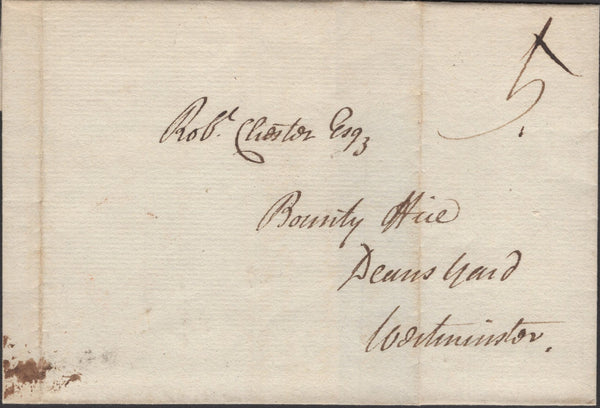 5
Robd. Chester Esqr
Bounty Office
Deans Yard
Westminster.